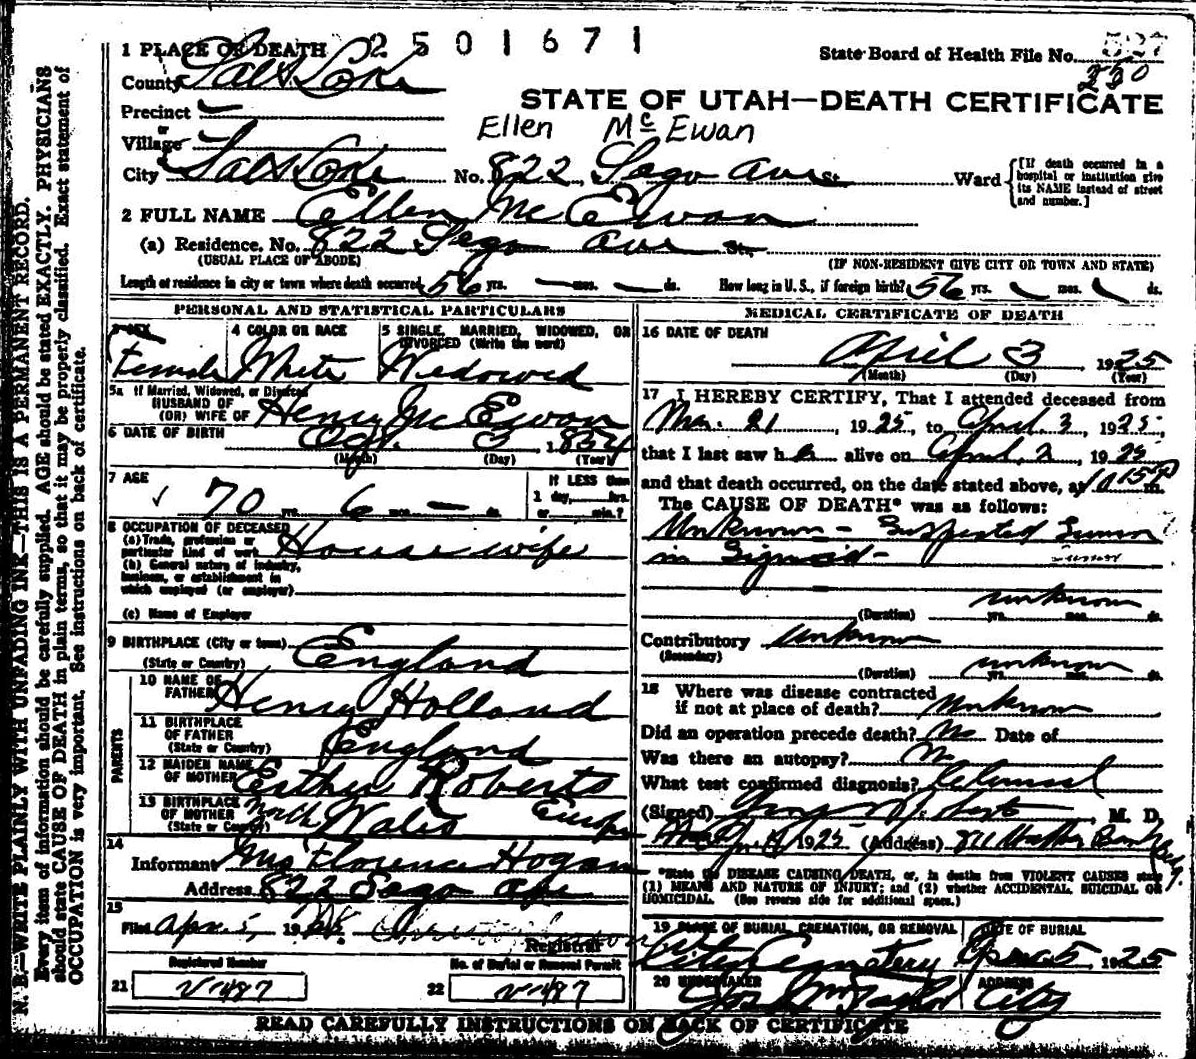 1 PLACE OF DEATH 2 5 0 1 6 7 1
State Board of Health File No. 527
County Salt Lake 250
STATE OF UTAH—DEATH CERTIFICATE
Precinct
or
Village
Ellen Mc Ewan
City Salt Lake No. 822 Sego Ave St. Ward [If death occurred in a hospital or institution give its NAME instead of street and number.]
2 FULL NAME Ellen Mc Ewan
(a) Residence. No. 822 Sego Ave St.
(USUAL PLACE OF ABODE) (IF NON-RESIDENT GIVE CITY OR TOWN AND STATE)
Length of residence in city or town where death occurred 56 yrs. — mos. — ds. How long in U.S., if foreign birth? 56 yrs. mos. ds.
PERSONAL AND STATISTICAL PARTICULARS
3 SEX 4 COLOR OR RACE 5 SINGLE, MARRIED, WIDOWED, OR
DIVORCED (Write the word)
Female White Widowed
5a If Married, Widowed, or Divorced
HUSBAND OF
(OR) WIFE OF Henry Mc Ewan
6 DATE OF BIRTH 3, 1854
(Month) (Day) (Year)
7 AGE If LESS than
70 yrs. 6 mos. — ds. 1 day, hrs.
or min.?
8 OCCUPATION OF DECEASED
(a) Trade, profession or
particular kind of work House wife
(b) General nature of industry,
business, or establishment in
which employed (or employer)
(c) Name of Employer
9 BIRTHPLACE (City or town)
(State or Country) England
PARENTS
10 NAME OF
FATHER Henry Holland
11 BIRTHPLACE
OF FATHER
(State or Country) England
12 MAIDEN NAME
OF MOTHER Esther Roberts
13 BIRTHPLACE
OF MOTHER
(State or Country) North Wales Europe
14
Informant Mrs Florence Hogan
Address 822 Sego Ave
15
Filed Apr. 5, 19
Registrar
Registered Number No. of Burial or Removal Permit
21 V 487 22 V 487
MEDICAL CERTIFICATE OF DEATH
16 DATE OF DEATH
April 3 1925
(Month) (Day) (Year)
17 I HEREBY CERTIFY, That I attended deceased from
Mar. 21, 1925, to April 3, 1925,
that I last saw h alive on April 2, 1925
and that death occurred, on the date stated above, at 10 15 P m.
The CAUSE OF DEATH* was as follows:
Unknown - Suspected Tumor
in Sigmoid - Tumor
unknown
(Duration) yrs. mos. ds.
Contributory Unknown
(Secondary)
unknown
(Duration) yrs. mos. ds.
18 Where was disease contracted
if not at place of death? Unknown
Did an operation precede death? No Date of
Was there an autopsy? No
What test confirmed diagnosis? Clinical
(Signed) M. D.
1925 (Address) 811 Walker Bank Bldg.
*State the DISEASE CAUSING DEATH, or, in deaths from VIOLENT CAUSES state
(1) MEANS AND NATURE OF INJURY; and (2) whether ACCIDENTAL, SUICIDAL OR
HOMICIDAL. (See reverse side for additional space.)
19 PLACE OF BURIAL, CREMATION, OR REMOVAL DATE OF BURIAL
City Cemetery Apr 5, 1925
20 UNDERTAKER ADDRESS
Jos. Wm Taylor City
READ CAREFULLY INSTRUCTIONS ON BACK OF CERTIFICATE
N. B.—WRITE PLAINLY WITH UNFADING INK—THIS IS A PERMANENT RECORD.
Every item of information should be carefully supplied. AGE should be stated EXACTLY. PHYSICIANS
should state CAUSE OF DEATH in plain terms, so that it may be properly classified. Exact statement of
OCCUPATION is very important. See instructions on back of certificate.